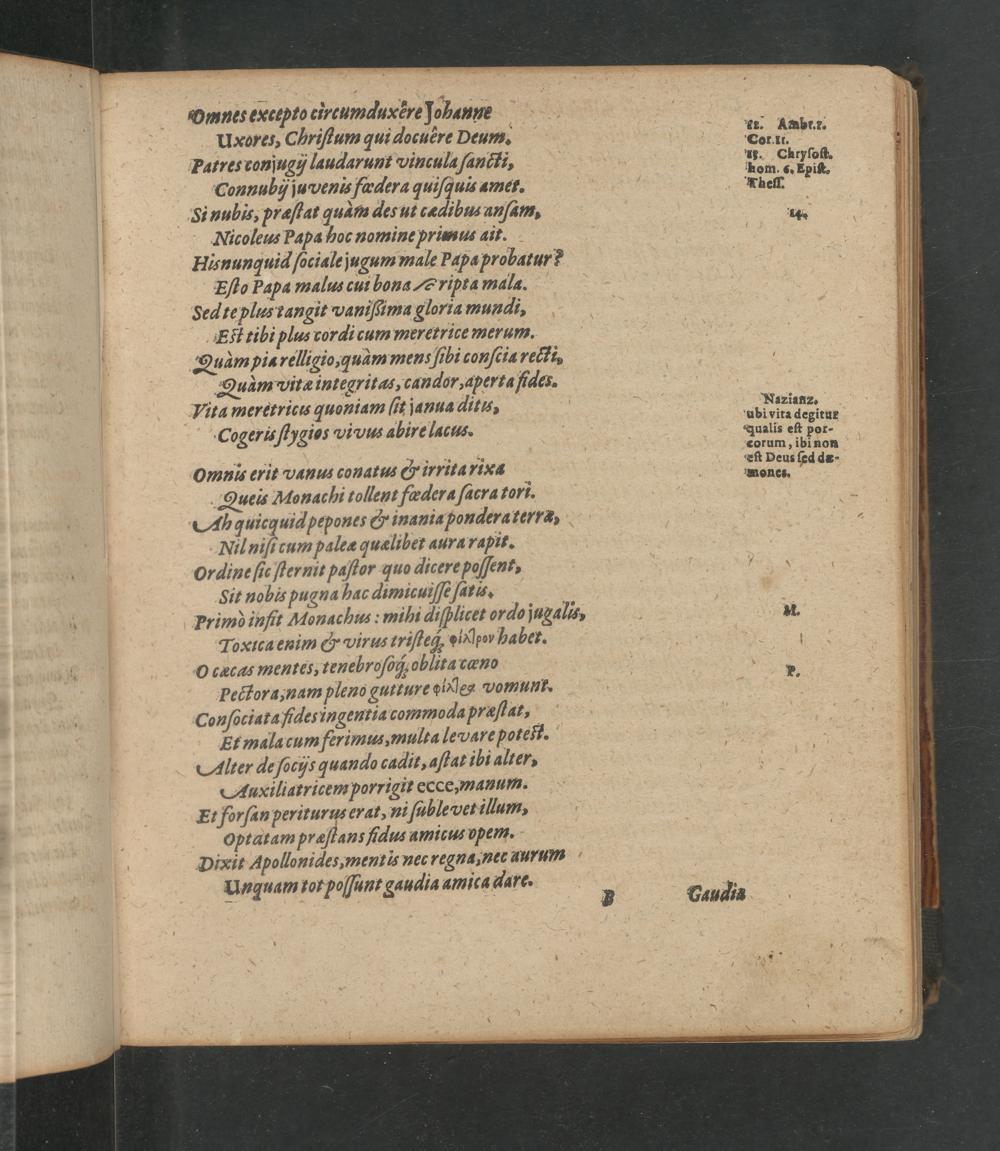 Omnes excepto circumduxêre Johanne
Uxores, Christum qui docuêre Deum.
Patres conjugij laudarunt vincula sancti,
Connubij juvenis fœdera quisquis amet.
Si nubis, præstat quàm des ut cædibus ansam,
Nicoleus Papa hoc nomine primus ait.
His nunquid sociale jugum male Papa probatur?
Esto Papa malus cui bona scripta mala.
Sed te plus tangit vanissima gloria mundi,
Est tibi plus cordi cum meretrice merum.
Quàm pia relligio, quàm mens sibi conscia recti,
Quàm vitæ integritas, candor, aperta fides.
Vita meretricis quoniam sit janua ditis,
Cogeris stygios vivus abire lacus.
Omnis erit vanus conatus & irrita rixa
Queis Monachi tollent fœdera sacra tori.
Ah quicquid pepones & inania pondera terræ,
Nil nisi cum paleæ quælibet aura rapit.
Ordine sic sternit pastor quo dicere possent,
Sit nobis pugna hac dimicuisse satis.
Primò insit Monachus: mihi displicet ordo jugalis,
Toxica enim & virus tristeq́; φίλτρον habet.
O cæcas mentes, tenebrosoq́; oblita cœno
Pectora, nam pleno gutture φίλτρα vomunt.
Consociata fides ingentia commoda præstat,
Et mala cum ferimus, multa levare potest.
Alter de socijs quando cadit, astat ibi alter,
Auxiliatricem porrigit ecce, manum.
Et forsan periturus erat, ni sublevet illum,
Optatam præstans fidus amicus opem.
Dixit Apollonides, mentis nec regna, nec aurum
Unquam tot possunt gaudia amica dare.
B Gaudia
12. Ambr. 2.
Cor. 11.
13. Chrysost.
hom. 6. Epist.
Thess.
14.
Nazianz.
ubi vita degitur
qualis est por-
corum, ibi non
est Deus sed dæ-
mones.
M.
P.